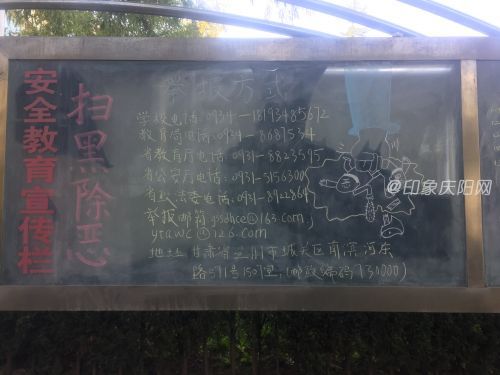 安全教育宣传栏
扫黑除恶
举报方式
学校电话:0934-18193485672
教育局电话:0934-8687534
省教育厅电话:0931-8823595
省公安厅电话:0931-5156300
省政法委电话:0931-8922864
举报邮箱 gsshce@163.com,
ytawc@126.com
地址 甘肃省兰州市城关区南滨河东
路571号1507室,(邮政编码730000)
@印象庆阳网